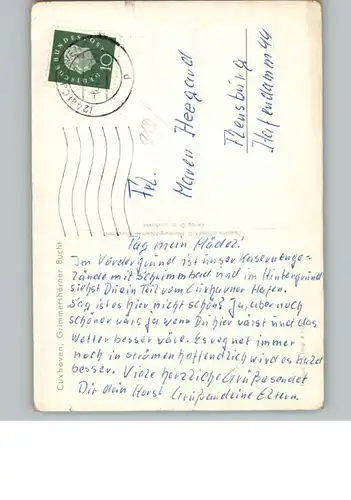 Frl.
Maren Heegard
Flensburg
Hafendamm 44
DEUTSCHE BUNDESPOST
10
Cuxhaven, Grimmershörner Bucht
Tag mein Mädel!
Im Vordergrund ist unser Kasernenge-
lände mit Schwimmbad und im Hintergrund
siehst Du ein Teil vom Cuxhavner Hafen.
Sag ist es hier nicht schön? Ja, aber noch
schöner wärs ja wenn Du hier wärst und das
Wetter besser wäre. Es regnet immer
noch in strömen hoffendlich wird es bald
besser. Viele herzliche Grüße sendet
Dir dein Horst Grüße an deine Eltern.